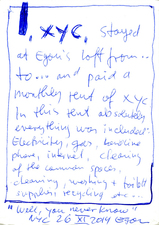 I, XYC, stayed
at Egon's loft from..
to... and paid a
monthly rent of XYC
In this rent absolutely
everything was included:
Electricity, gas, landline
phone, internet, cleaning
of the common spaces,
cleaning, washing & toilet
supplies, recycling etc...
"Well, you never know"
NYC 26 XI 2014 Egon